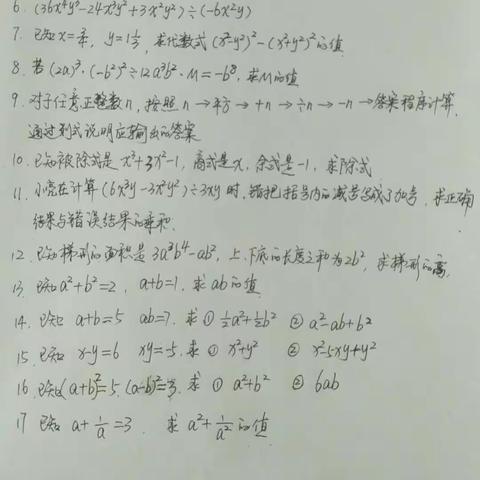 6. (36x⁴y³-24x³y²+3x²y²)÷(-6x²y)
7. 已知x= , y=1⅓, 求代数式(x²-y²)²-(x²+y²)²的值
8. 若(2a)³·(-b²)²÷12a³b²·M=-b⁸, 求M的值
9. 对于任意正整数n, 按照 n→平方→+n→÷n→-n→答案程序计算,
通过列式说明应输出的答案
10. 已知被除式是x³+3x²-1, 商式是x, 余式是-1, 求除式
11. 小亮在计算(6x³y-3x²y²)÷3xy时, 错把括号内的减号写成了加号, 求正确
结果与错误结果的乘积.
12. 已知梯形的面积是3a³b⁴-ab², 上、下底的长度之和为2b², 求梯形的高,
13. 已知a²+b²=2, a+b=1, 求ab的值
14. 已知 a+b=5 ab=7, 求 ① ½a²+½b² ② a²-ab+b²
15. 已知 x-y=6 xy=-5, 求 ① x²+y² ② x²-5xy+y²
16. 已知(a+b)²=5, (a-b)²=3, 求 ① a²+b² ② 6ab
17 已知 a+1/a=3. 求 a²+1/a² 的值